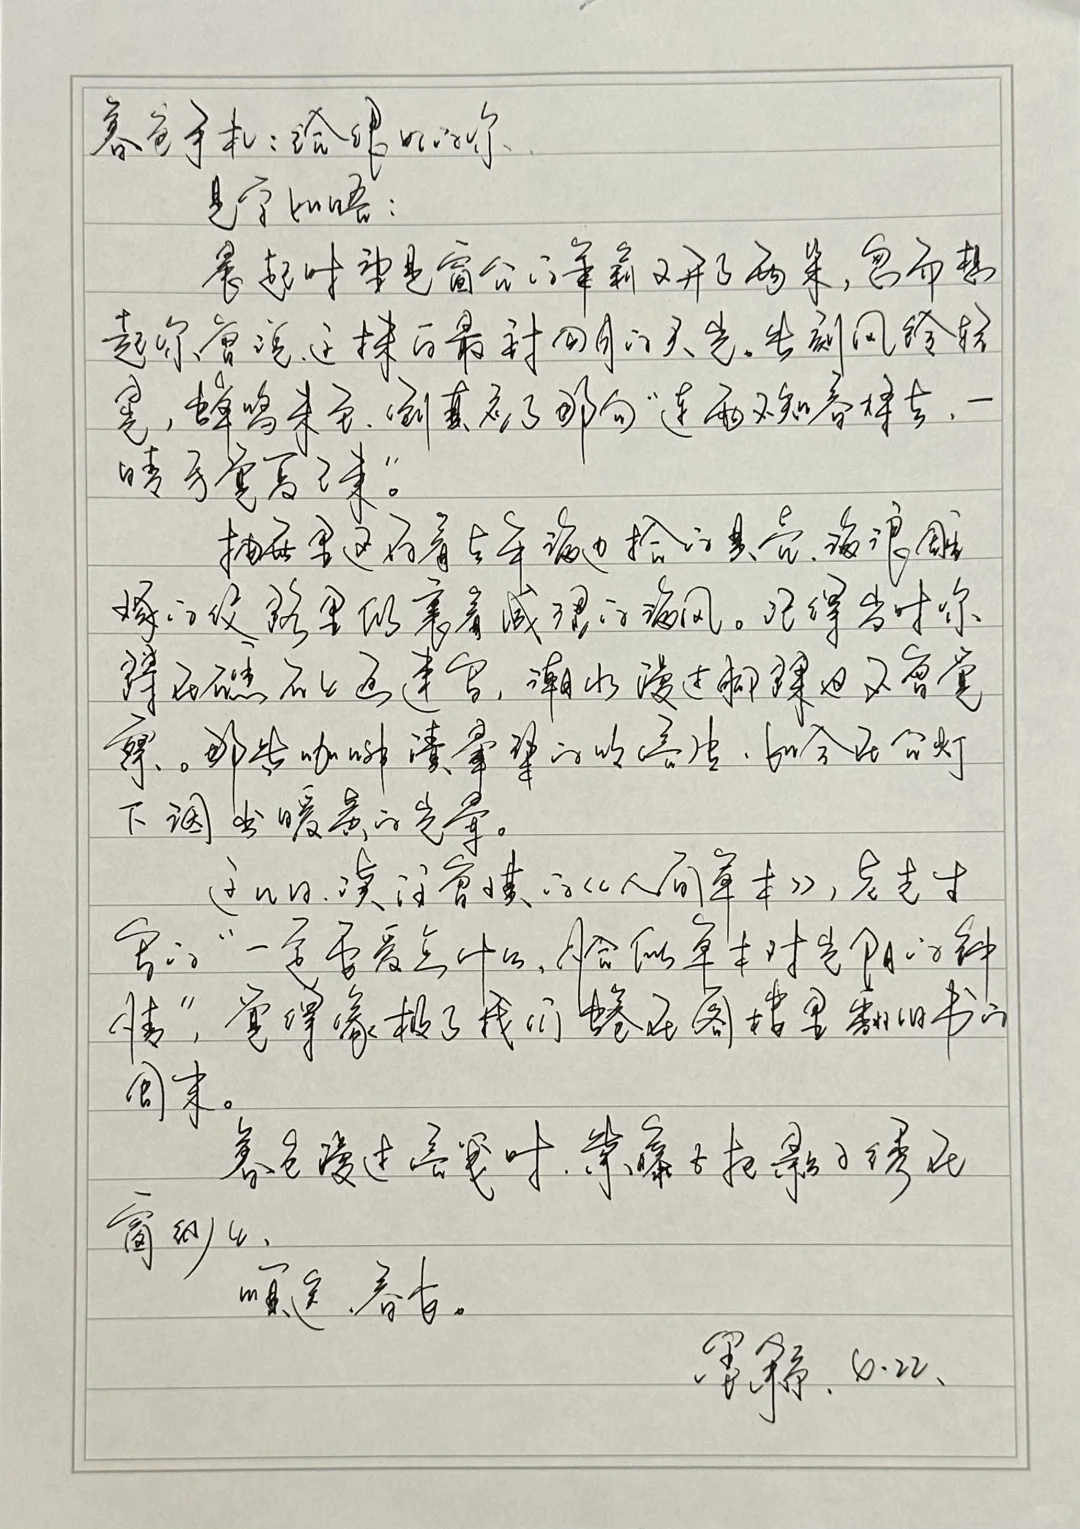 暮色手札：给缓如的你、
见字如晤：
晨起时望见窗台的茉莉又开了两朵，忽而想
起你曾说、这抹白最衬四月的天光。此刻风铃轻
晃，蝉鸣未至、倒真应了那句“连雨不知春将去、一
晴方觉夏已来”。
抽屉里还存着去年海边拾的贝壳、海浪雕
琢的纹路里似裹着咸湿的海风。记得当时你
蹲在礁石上画速写，潮水漫过脚踝也不曾觉
察。那些咖啡渍晕染的明信片、如今在台灯
下洇出暖黄的光晕。
这几日、读汪曾祺的《人间草木》，老先生
写的“一定要爱点什么、恰似草木对光阴的钟
情”，觉得像极了我们蜷在阁楼里翻旧书的
周末。
暮色漫过信笺时、紫藤正把影子绣在
窗纱上、
顺颂、春吉。
4.22、